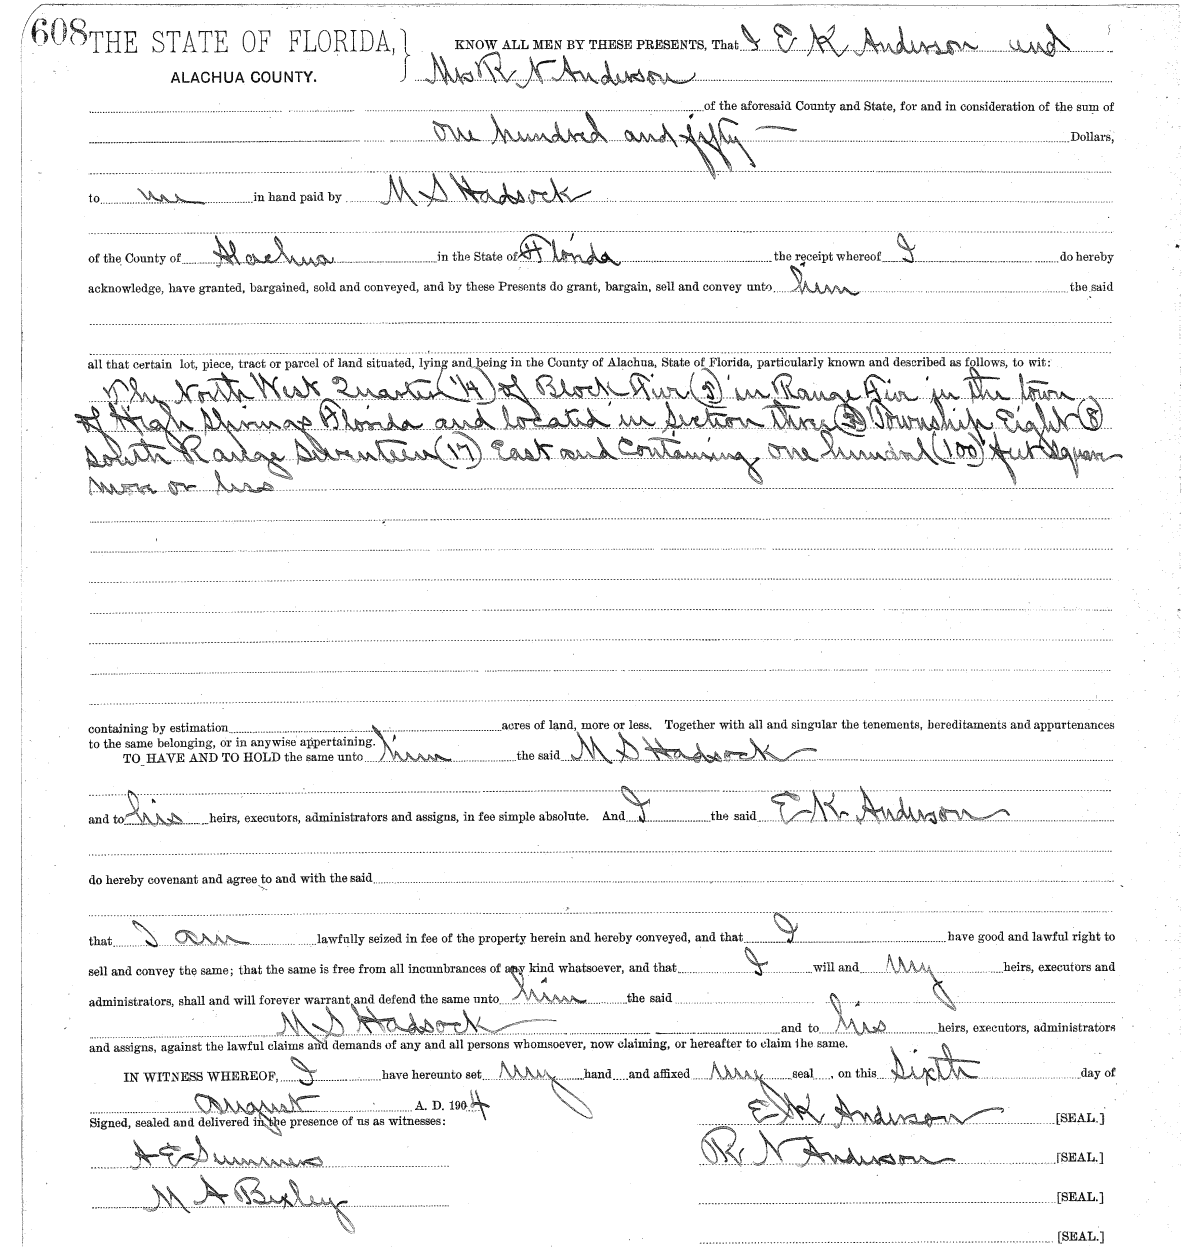 608 THE STATE OF FLORIDA,
ALACHUA COUNTY.
KNOW ALL MEN BY THESE PRESENTS, That I E K Anderson and
Mrs R N Anderson
of the aforesaid County and State, for and in consideration of the sum of
One hundred and fifty — Dollars,
to me in hand paid by M S Hadsock
of the County of Alachua in the State of Florida the receipt whereof I do hereby
acknowledge, have granted, bargained, sold and conveyed, and by these Presents do grant, bargain, sell and convey unto him the said
all that certain lot, piece, tract or parcel of land situated, lying and being in the County of Alachua, State of Florida, particularly known and described as follows, to wit:
The North West Quarter (1/4) of Block Five (5) in Range Five in the town
of High Springs Florida and located in Section three (3) Township Eight (8)
South Range Seventeen (17) East and Containing one hundred (100) feet Square
more or less
containing by estimation acres of land, more or less. Together with all and singular the tenements, hereditaments and appurtenances
to the same belonging, or in anywise appertaining.
TO HAVE AND TO HOLD the same unto him the said M S Hadsock
and to his heirs, executors, administrators and assigns, in fee simple absolute. And I the said E K Anderson
do hereby covenant and agree to and with the said
that I am lawfully seized in fee of the property herein and hereby conveyed, and that I have good and lawful right to
sell and convey the same; that the same is free from all incumbrances of any kind whatsoever, and that I will and my heirs, executors and
administrators, shall and will forever warrant and defend the same unto him the said
M S Hadsock and to his heirs, executors, administrators
and assigns, against the lawful claims and demands of any and all persons whomsoever, now claiming, or hereafter to claim the same.
IN WITNESS WHEREOF, I have hereunto set my hand and affixed my seal, on this Sixth day of
August A. D. 1904
E K Anderson [SEAL.]
Signed, sealed and delivered in the presence of us as witnesses:
A E Summers
R N Anderson [SEAL.]
M A Bexley
[SEAL.]
[SEAL.]